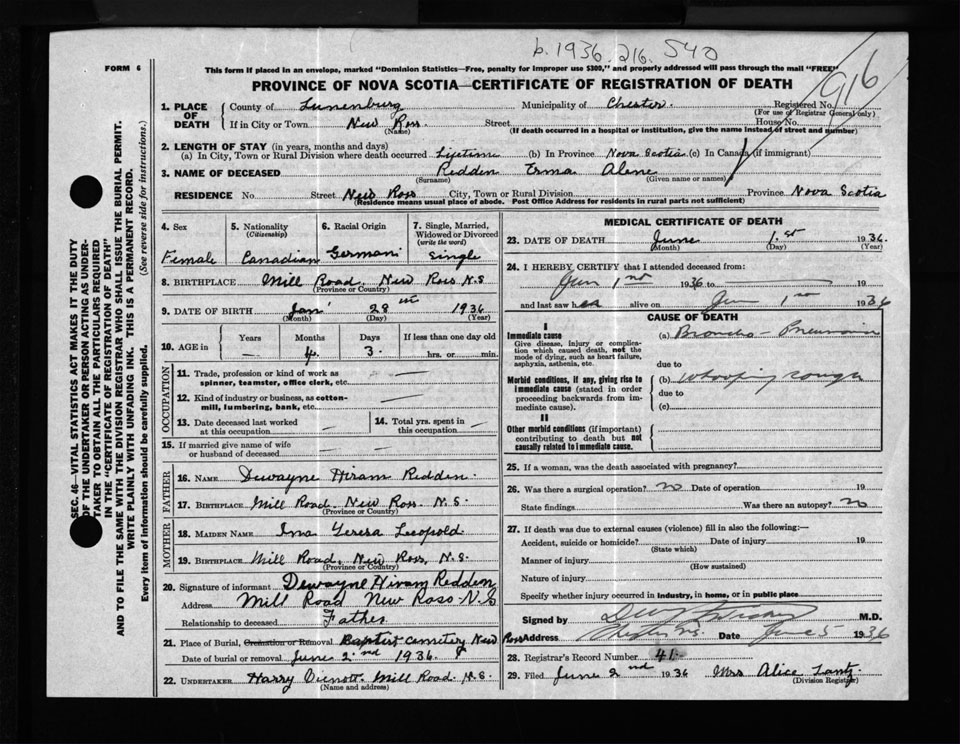 b. 1936. 216. 540
916
FORM 6
This form if placed in an envelope, marked "Dominion Statistics—Free, penalty for improper use $300," and properly addressed will pass through the mail "FREE"
PROVINCE OF NOVA SCOTIA—CERTIFICATE OF REGISTRATION OF DEATH
1. PLACE OF DEATH { County of Lunenburg Municipality of Chester. Registered No.
(For use of Registrar General only)
If in City or Town New Ross. Street House No.
(Name) (If death occurred in a hospital or institution, give the name instead of street and number)
2. LENGTH OF STAY (in years, months and days)
(a) In City, Town or Rural Division where death occurred Lifetime (b) In Province Nova Scotia (c) In Canada (if immigrant)
3. NAME OF DECEASED Redden Erma Alene
(Surname) (Given name or names)
RESIDENCE No. Street New Ross City, Town or Rural Division Province Nova Scotia
(Residence means usual place of abode. Post Office Address for residents in rural parts not sufficient)
4. Sex 5. Nationality 6. Racial Origin 7. Single, Married, Widowed or Divorced
(Citizenship) (write the word)
Female Canadian German Single
8. BIRTHPLACE Mill Road. New Ross N.S
(Province or Country)
9. DATE OF BIRTH Jan 28 1936
(Month) (Day) (Year)
10. AGE in { Years Months Days If less than one day old
— 4 3. hrs. or min.
OCCUPATION
11. Trade, profession or kind of work as spinner, teamster, office clerk, etc. —
12. Kind of industry or business, as cotton-mill, lumbering, bank, etc. —
13. Date deceased last worked at this occupation — 14. Total yrs. spent in this occupation —
15. If married give name of wife or husband of deceased — —
FATHER
16. NAME Dewayne Hiram Redden
17. BIRTHPLACE Mill Road. New Ross. N.S.
(Province or Country)
MOTHER
18. MAIDEN NAME Ina Teresa Leopold
19. BIRTHPLACE Mill Road, New Ross, N.S.
(Province or Country)
20. Signature of informant Dewayne Hiram Redden
Address Mill Road New Ross N.S
Relationship to deceased Father
21. Place of Burial, Cremation or Removal Baptist Cemetery New Ross
Date of burial or removal June 2nd 1936.
22. UNDERTAKER Harry Mill Road. N.S.
(Name and address)
MEDICAL CERTIFICATE OF DEATH
23. DATE OF DEATH June 1.st 1936.
(Month) (Day) (Year)
24. I HEREBY CERTIFY that I attended deceased from:
Jun 1 1936 to 19
and last saw her alive on Jun 1 1936
CAUSE OF DEATH
I
Immediate cause
Give disease, injury or complication which caused death, not the mode of dying, such as heart failure, asphyxia, asthenia, etc.
(a) Broncho-Pneumonia
due to
Morbid conditions, if any, giving rise to immediate cause (stated in order proceeding backwards from immediate cause).
(b) Whooping Cough
due to
(c)
II
Other morbid conditions (if important) contributing to death but not causally related to immediate cause.
25. If a woman, was the death associated with pregnancy?
26. Was there a surgical operation? no Date of operation 19
State findings Was there an autopsy? no
27. If death was due to external causes (violence) fill in also the following:—
Accident, suicide or homicide? Date of injury 19
(State which)
Manner of injury
(How sustained)
Nature of injury
Specify whether injury occurred in industry, in home, or in public place
Signed by M.D.
Address Chester N.S. Date June 5 1936
28. Registrar's Record Number 41.
29. Filed June 2nd 1936 Mrs Alice Lantz
(Division Registrar)
SEC. 46—VITAL STATISTICS ACT MAKES IT THE DUTY
OF THE UNDERTAKER OR PERSON ACTING AS UNDER-
TAKER TO OBTAIN ALL THE PARTICULARS REQUIRED
IN THE "CERTIFICATE OF REGISTRATION OF DEATH"
AND TO FILE THE SAME WITH THE DIVISION REGISTRAR WHO SHALL ISSUE THE BURIAL PERMIT.
WRITE PLAINLY WITH UNFADING INK. THIS IS A PERMANENT RECORD.
Every item of information should be carefully supplied. (See reverse side for instructions.)